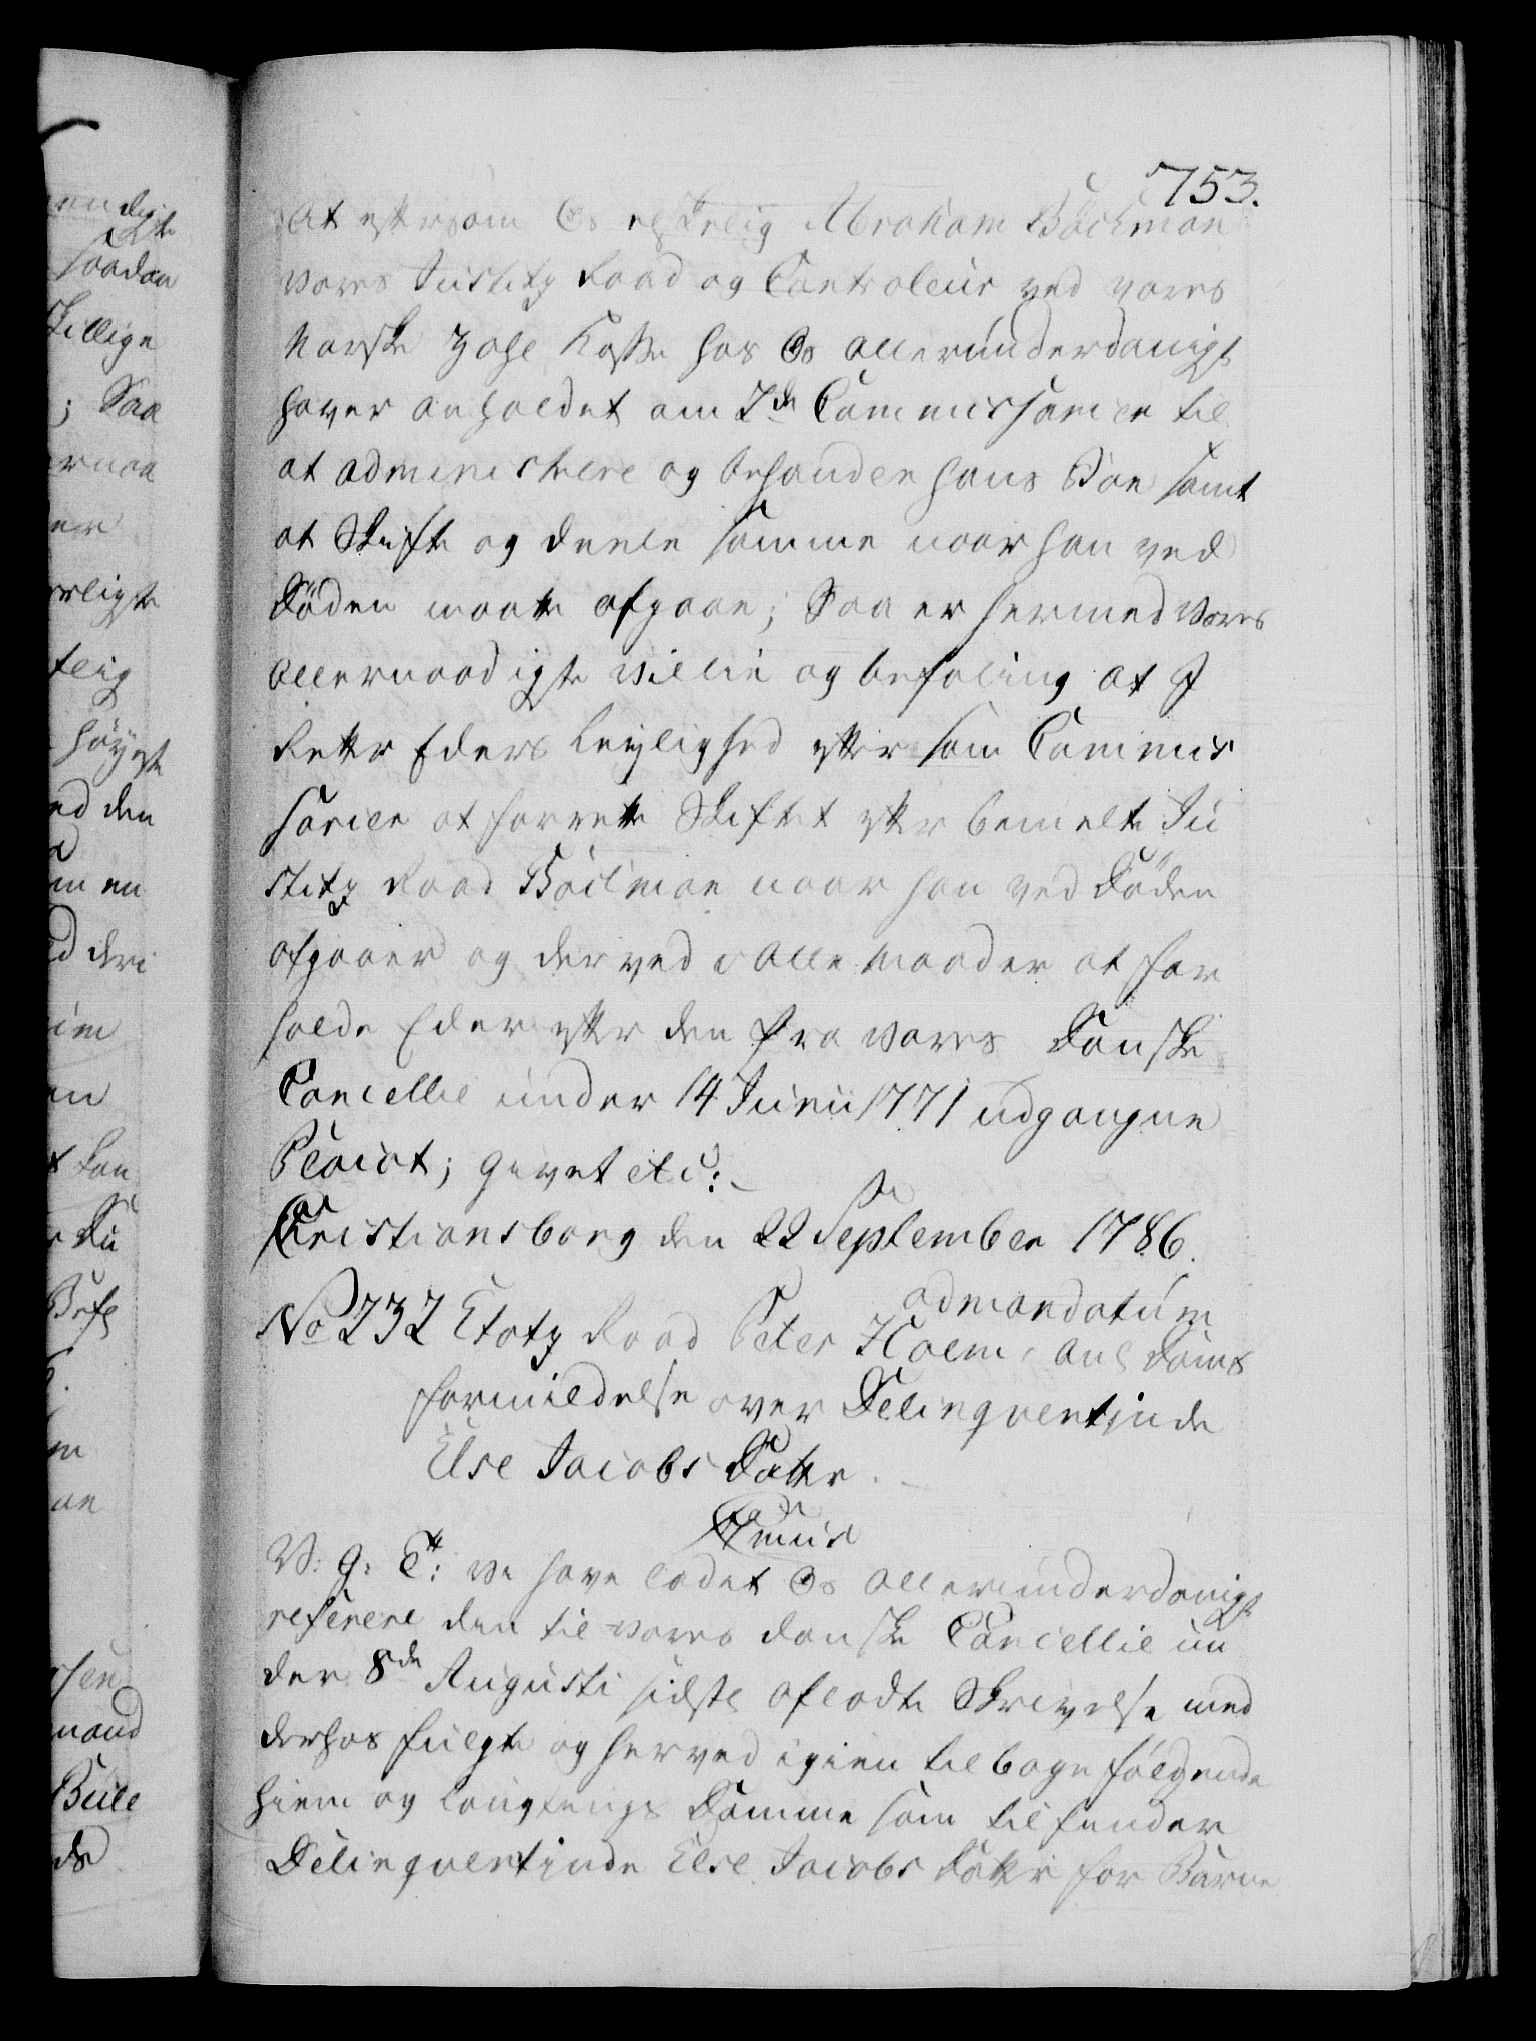 753.
At eftersom Os elskelig Abraham Böckman
vores Justitz Raad og Controleur ved vores
Norske Zahl Kasse hos Os allerunderdanigst
haver anholdet om 2de Commissarier til
at administrere og behandle hans Boe samt
at Skifte og deele samme naar han ved
Döden maatte afgaae; Saa er hermed Vores
allernaadigste Villie og befaling at I
Retter Eders Leylighed efter som Commis
sarier at forrette Skiftet efter bemelte Ju
stitz Raad Böckman naar han ved Döden
afgaaer og derved i alle Maader at for
holde Eder efter den fra vores Danske
Cancellie under 14 Junii 1771 udgangne
Placat; givet etc:
Christiansborg den 22 September 1786.
ad mandatum
No 232 Etatz Raad Peter Holm, anl Doms
formildelse over Delinqventinde
Else Jacobs Datter.
V: G: Tt: Vi have ladet Os allerunderdanigst
referere den til vores danske Cancellie un
der 8de Augusti sidste afladte Skrivelse med
derhos fulgte og herved igien tilbage fölgende
Hiem og Laugtings Domme som tilfinder
Delinqventinde Else Jacobs Datter for Barne